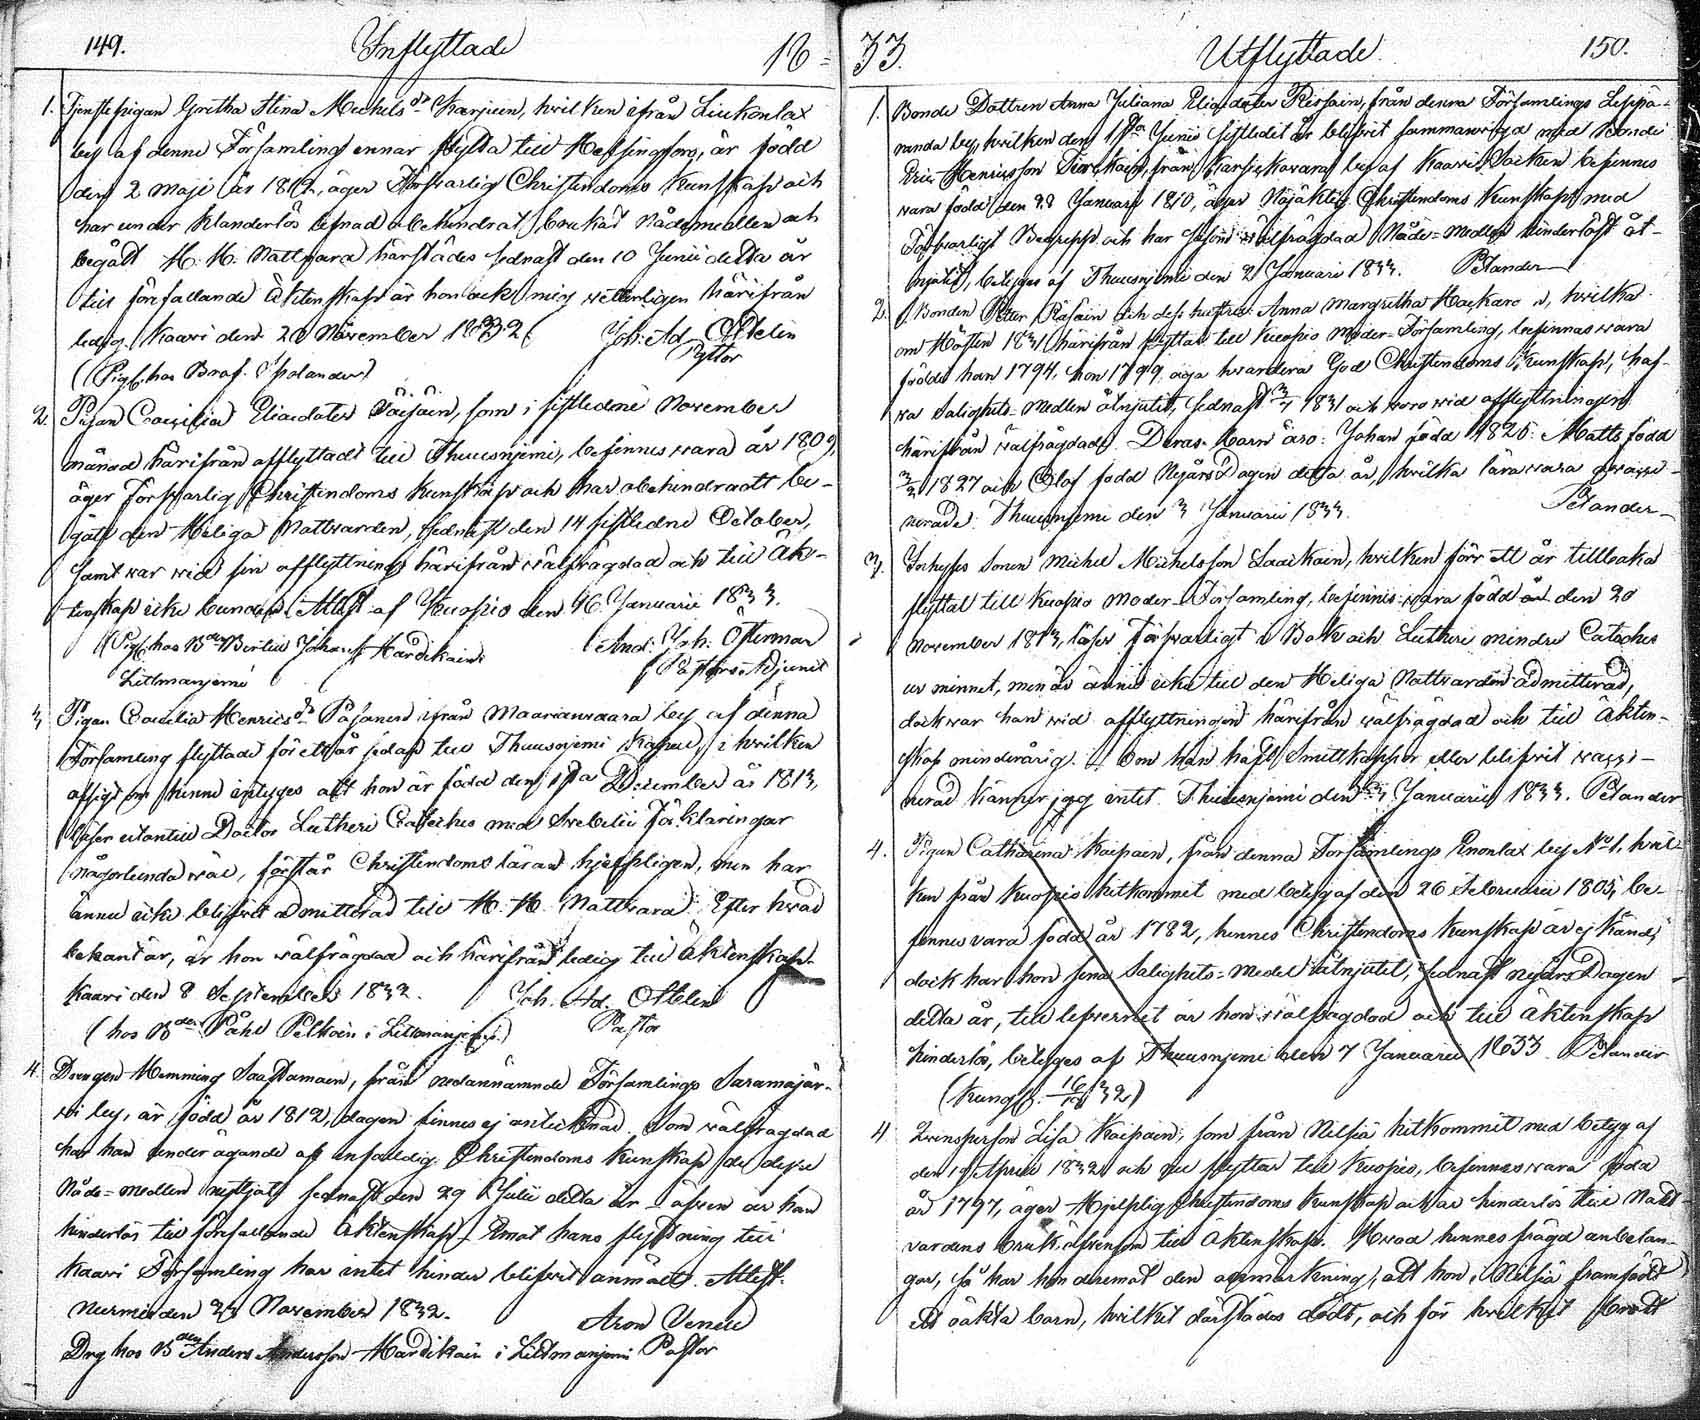 149. Inflyttade 18
1. Tjenstepigan Gretha Stina Michels dr Karjuin, hvilken ifrån Liukonlax
by af denne Församling ernar flytta till Helsingfors, är född
den 2 Maji år 1812, äger Försvarlig Christendoms Kunskap och
har under klanderlös lefnad obehindrat brukat Nådemedlen och
begått H. H. Nattvard härstädes sednast den 10 Junii detta år
till förefallande Äktenskap är hon ock mig vetterligen härifrån
ledig. Kaavi den 20 November 1832. Joh: Ad. Ottelin
Pastor
(Pig. hos Prof. Spolander)
2. Pigan Caecilia Eliaedoter Väisäin, som i sistledne November
månad härifrån afflyttade till Thuusnjemi, befinnes vara år 1809,
äger Försvarlig Christendoms Kunskap och har obehindradt be-
gått den Heliga Nattvarden, sednast den 14 sistledne October,
samt var vid sin afflyttning härifrån välfrägdad och till Äk-
tenskap icke bunden. Attest. af Kuopio den 16. Januarii 1833.
(Pig. hos Bd. Johan Hardikain And: Joh: Österman
Litlmanjemi Pastors Adjunct
3. Pigan Caecilia Henrics dr Pajanen ifrån Maarianvaara by af denna
Församling flyttade för ett år sedan till Thuusnjemi Kapell, i hvilken
afsigt om henne intygas att hon är född den 1sta December år 1813,
läser utantill Doctor Lutheri Cateches med Svebelii Förklaringar
någorlunda väl, förstår Christendoms läran hjelpligen, men har
ännu icke blifvit admitterad till H. H. Nattvard. Efter hvad
bekant är, är hon välfrägdad och härifrån ledig till Äktenskap.
Kaavi den 8 September 1832. Joh. Ad. Ottelin
(hos Bden Påhl Pelkoin i Litlmanjemi) Pastor
4. Drengen Hemming Saastamoin, från nedannämnde Församlings Saramojär-
vi by, är född år 1812, dagen finnes ej antecknad. Som välfrägdad
har han under ägande af enfaldig Christendoms Kunskap de dyre
Nåde-medlen nyttjat, sednast den 29 Julii detta år äfven är han
hinderlös till förefallande Äktenskap. Emot hans flyttning till
Kaavi Församling har intet hinder blifvit anmält. Attest.
Nurmis den 23 November 1832. Aron Venell
Drg hos Bden Anders Andersson Hardikain i Litlmanjemi Pastor
33. Utflyttade. 150.
1. Bonde Dottren Anna Juliana Eliaedoter Reissain, från denna Församlings Leppä-
randa by, hvilken den 1sta Junii sistledit år blifvit sammanvigd med Bonden
Eric Henricsson från Karsikkovara by af Kaavi Socken befinnes
vara född den 28 Januarii 1810, äger Nöjaktig Christendoms Kunskap med
Försvarligt Begrepp och har såsom välfrägdad Nåde-Medlen hinderlöst åt-
njutit, betyges af Thuusnjemi den 2 Januarii 1833. Pelander
2. Bonden Peter Räsäin och dess hustru Anna Margretha Hackarain, hvilka
om Hösten 1831 härifrån flyttat till Kuopio Moder-Församling, befinnas vara
födde han 1794, hon 1799, äga hvardera God Christendoms Kunskap, haf-
va Salighets-Medlen åtnjutit, sednast 3/7 1831 och voro vid afflyttningen
härifrån välfrägdade. Deras Barn äro: Johan född 1826: Matts född
3/2 1827 och Olof född Nyårs Dagen detta år, hvilka lära vara vacci-
nerade. Thuusnjemi den 3 Januarii 1833. Pelander
3. Inhyses Sonen Michel Michelsson Laaikain, hvilken förr ett år tillbaka
flyttat till Kuopio Moder-Församling, befinnes vara född år den 20
November 1813, läser Försvarligt i Bok och Lutheri mindre Cateches
ur minnet, men är ännu icke till den Heliga Nattvarden admitterad,
dock var han vid afflyttningen härifrån välfrägdad och till Äkten-
skap minderårig. Om han haft Smittkoppor eller blifvit vacci-
nerad känner jag intet. Thuusnjemi den 3 Januarii 1833. Pelander
4. Pigan Catharina Kaipain, från denna Församlings Enonlax by No 1. hvil-
ken från Kuopio hitkommit med betyg af den 26 Februarii 1805, be-
finnes vara född år 1782, hennes Christendoms Kunskap är ej känd,
dock har hon sina Salighets-Medel åtnjutit, sednast nyårs Dagen
detta år, till lefvernet är hon välfrägdad och till Äktenskap
hinderlös, betyges af Thuusnjemi den 7 Januarii 1833. Pelander
(Kungj. 16/12 32)
4 Qvinsperson Lisa Kaipain, som från Nilsiä hitkommit med betyg af
den 19 April 1832 och nu flyttar till Kuopio, befinnes vara född
år 1797, äger Hjelplig Christendoms Kunskap och är hinderlös till Natt-
vardens bruk, äfvensom till Äktenskap. Hvad hennes frägd anbelan-
gar, så har hon deremot den anmärkning, att hon i Nilsiä framfödt
ett oäkta barn, hvilket därstädes dödt, och för hvilket brott